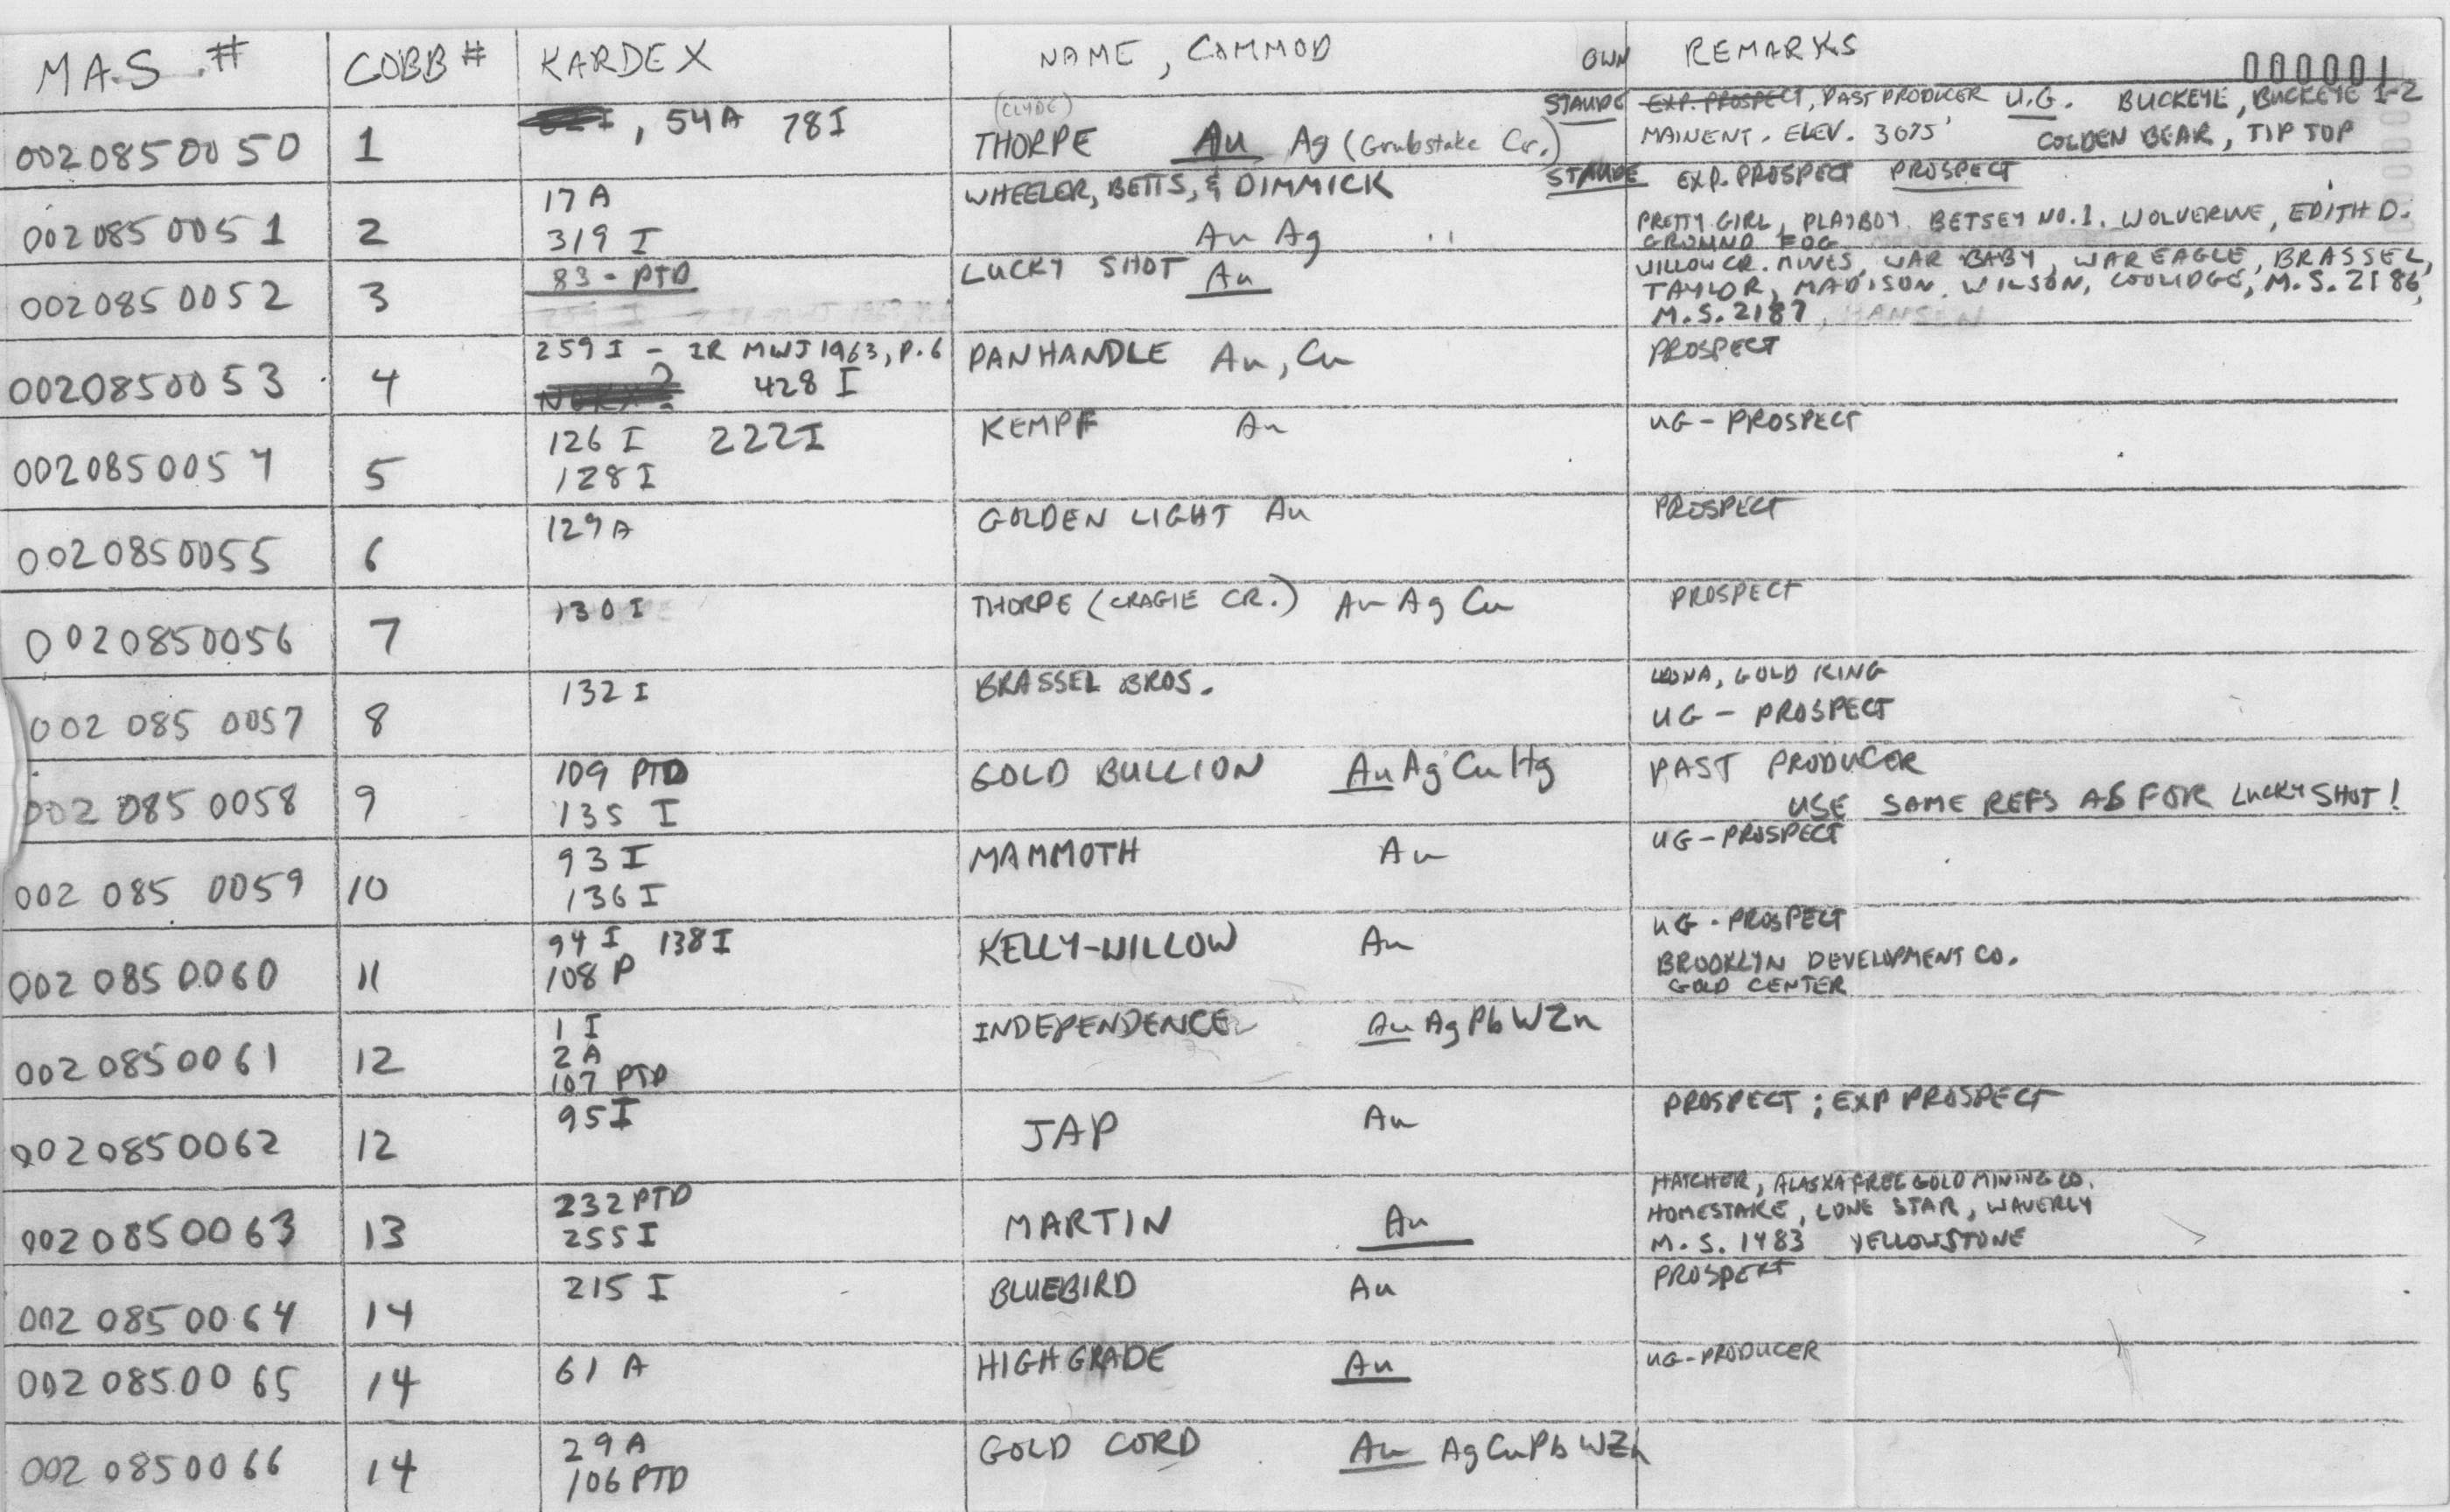 M.A.S. # COBB # KARDEX NAME, COMMOD OWN REMARKS 000001
0020850050 1 , 54A 78I (CLYDE) THORPE Au Ag (Grubstake Cr.) STAUDE EXP. PROSPECT, PAST PRODUCER U.G. BUCKEYE, BUCKEYE 1-2
MAINENT. ELEV. 3075' GOLDEN BEAR, TIP TOP
0020850051 2 17A WHEELER, BETTS, & DIMMICK STAUDE EXP. PROSPECT PROSPECT
319 I Au Ag PRETTY GIRL, PLAYBOY, BETSEY NO.1, WOLVERINE, EDITH D.
GROUND FOG
0020850052 3 83 - PTD LUCKY SHOT Au WILLOW CR. MINES, WAR BABY, WAR EAGLE, BRASSEL,
TAYLOR, MADISON, WILSON, COOLIDGE, M.S. 2186,
M.S. 2187, HANSEN
0020850053 4 259 I - IR MWJ 1963, P. 6 PANHANDLE Au, Cu PROSPECT
428 I
0020850054 5 126 I 222I KEMPF Au UG - PROSPECT
128 I
0020850055 6 129A GOLDEN LIGHT Au PROSPECT
0020850056 7 130 I THORPE (CRAGIE CR.) Au Ag Cu PROSPECT
002 085 0057 8 132 I BRASSEL BROS. LEONA, GOLD KING
UG - PROSPECT
002 085 0058 9 109 PTD GOLD BULLION Au Ag Cu Hg PAST PRODUCER
135 I USE SAME REFS AS FOR LUCKY SHOT!
002 085 0059 10 93 I MAMMOTH Au UG - PROSPECT
136 I
002 085 0060 11 94 I 138 I KELLY-WILLOW Au UG - PROSPECT
108 P BROOKLYN DEVELOPMENT CO.
GOLD CENTER
002 0850061 12 1 I INDEPENDENCE Au Ag Pb W Zn
2 A
107 PTD
0020850062 12 95 I JAP Au PROSPECT; EXP PROSPECT
0020850063 13 232 PTD MARTIN Au HATCHER, ALASKA FREE GOLD MINING CO.
255 I HOMESTAKE, LONE STAR, WAVERLY
M.S. 1483 YELLOWSTONE
002 0850064 14 215 I BLUEBIRD Au PROSPECT
002 0850065 14 61 A HIGH GRADE Au UG - PRODUCER
002 0850066 14 29 A GOLD CORD Au Ag Cu Pb W Zn
106 PTD